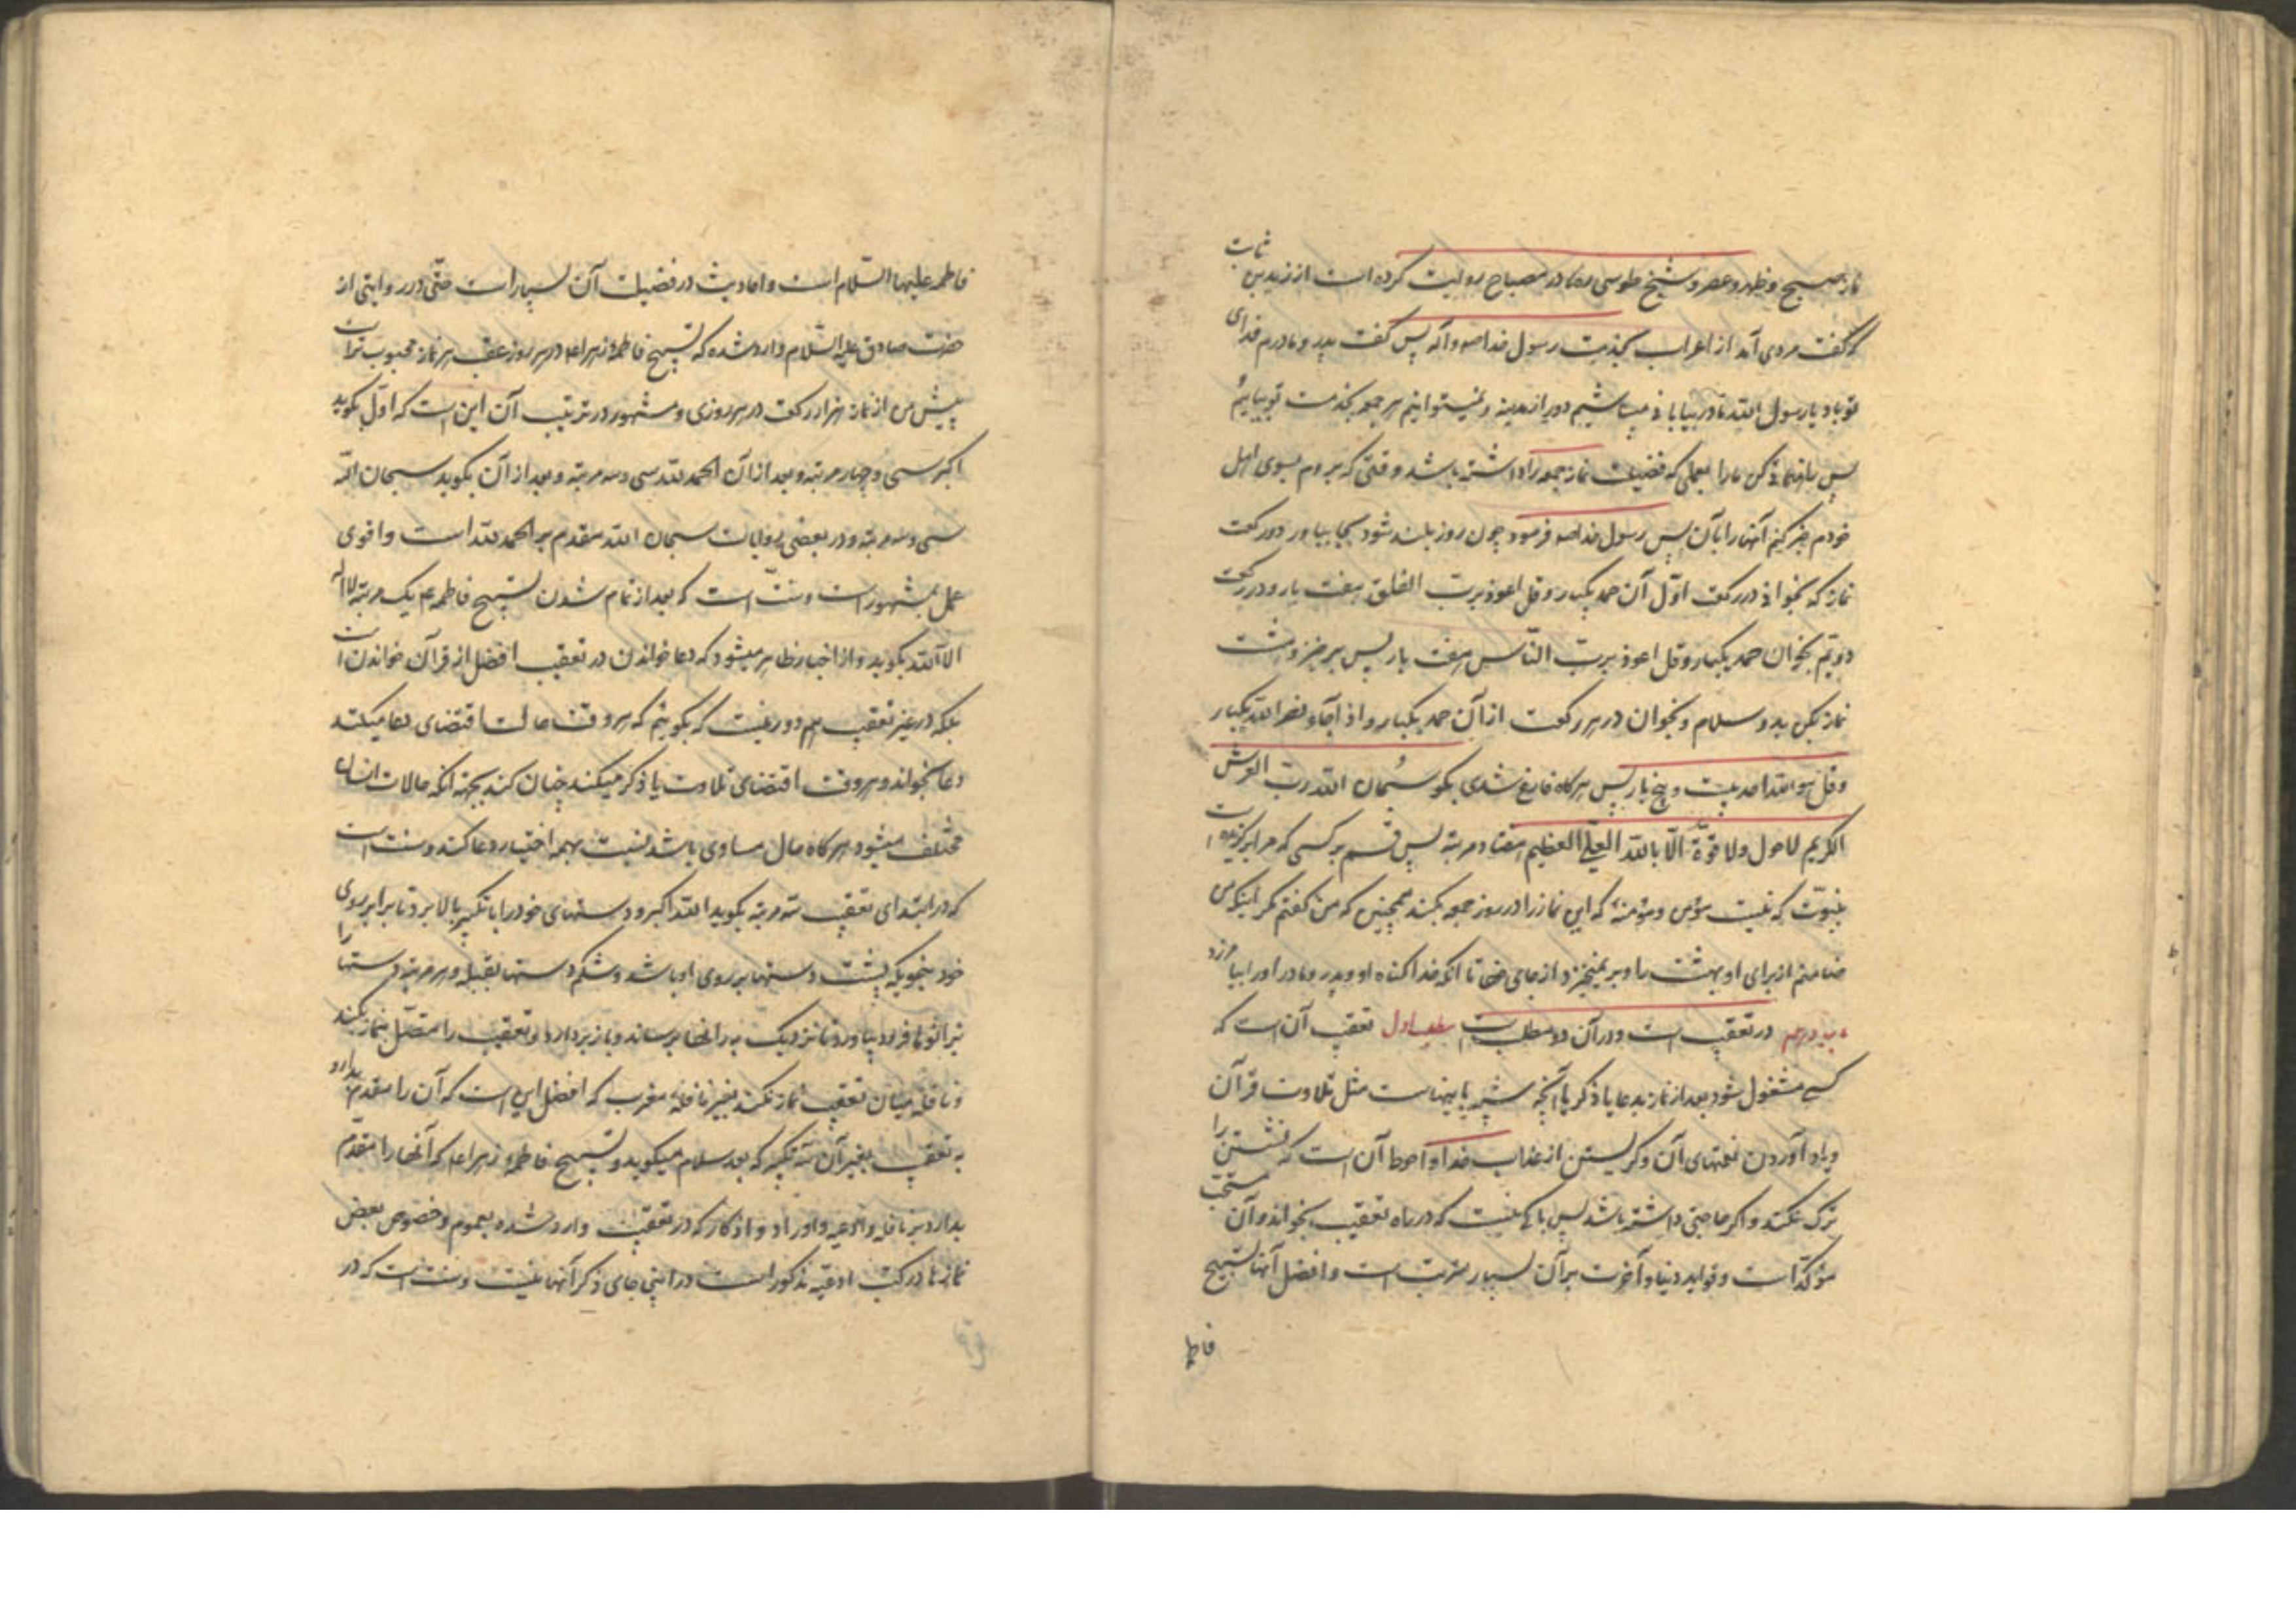 نماز صبح و ظهر و عصر و شیخ طوسی ره در مصباح روایت کرده است از زید بن ثابت
که گفت مردی آمد از اعراب بخدمت رسول خدا ص و آله پس گفت پدر و مادرم فدای
تو باد یا رسول الله ما در بیابانی میباشیم دور از مدینه و نمیتوانیم هر جمعه بخدمت تو بیائیم
پس راهنمائی کن ما را بعملی که فضیلت نماز جمعه را داشته باشد وقتی که بروم بسوی اهل
خودم خبر کنم آنها را بآن پس رسول خدا ص فرمود چون روز بلند شود بجا بیاور دو رکعت
نماز که بخوانی در رکعت اول آن حمد یکبار و قل اعوذ برب الفلق هفت بار و در رکعت
دویم بخوان حمد یکبار و قل اعوذ برب الناس هفت بار پس برخیز و هشت
نماز بکن بدو سلام و بخوان در هر رکعت از آن حمد یکبار و اذا جاء نصر الله یکبار
و قل هو الله احد بیست و پنج بار پس هرگاه فارغ شدی بگو سبحان الله رب العرش
الکریم لا حول ولا قوة الا بالله العلی العظیم هفتاد مرتبه پس قسم بر کسی که مرا برگزیده است
بنبوت که نیست مؤمن و مؤمنه که این نماز را در روز جمعه بکند همچنین که من گفتم مگر اینکه من
ضامنم از برای او بهشت را و بر نمیخیزد از جای خود تا آنکه خدا گناه او و پدر و مادر او را بیامرزد
در تعقیب است و در آن دو مطلب است مطلب اول تعقیب آن است که
کسی مشغول شود بعد از نماز بدعا یا ذکر یا آنچه شبیه باینهاست مثل تلاوت قرآن
و یاد آوردن نعمتهای آن و گریستن از عذاب خدا و احوط آن است که نشستن را
ترک نکند و اگر حاجتی داشته باشد پس باکی نیست که در راه تعقیب بخواند و آن مستحب
مؤکد است و فواید دنیا و آخرت بر آن بسیار مترتب است و افضل آنها تسبیح
فاطمه
فاطمه علیها السلام است و احادیث در فضیلت آن بسیار است حتی در روایتی از
حضرت صادق علیه السلام وارد شده که تسبیح فاطمه زهراء در هر روز عقب هر نماز محبوب‌تر است
پیش من از نماز هزار رکعت در هر روزی و مشهور در ترتیب آن این است که اول بگوید
اکبر سی و چهار مرتبه و بعد از آن الحمد لله سی و سه مرتبه و بعد از آن بگوید سبحان الله
سی و سه مرتبه و در بعضی روایات سبحان الله مقدم بر الحمد لله است و اقوی
عمل بمشهور است و سنت است که بعد از تمام شدن تسبیح فاطمه ع یک مرتبه لا اله
الا الله بگوید و از اخبار ظاهر میشود که دعا خواندن در تعقیب افضل از قرآن خواندن است
بلکه در غیر تعقیب هم دور نیست که بگوییم که هر وقت حالت اقتضای دعا میکند
دعا بخواند و هر وقت اقتضای تلاوت یا ذکر میکند چنان کند بجهة آنکه حالات انسان
مختلف میشود و هرگاه حال مساوی باشد نسبت بهمه اختیار دعا کند و سنت است
که در ابتدای تعقیب سه مرتبه بگوید الله اکبر و دستهای خود را با تکبیر بالا برد تا برابر روی
خود بنحویکه پشت دستها بر روی او باشد و شکم دستها بقبله و هر مرتبه دستها را
تا فرود بیاورد تا نزدیک به رانها برساند و باز بردارد و تعقیب را متصل بنماز بکند
و نافله میان تعقیب نماز نکند بغیر نافله مغرب که افضل این است که آن را مقدم بدارد
به تعقیب بغیر آن سه تکبیر که بعد سلام میگوید و تسبیح فاطمه زهراء ع که آنها را مقدم
بدارد بر نافله و ادعیه و اوراد و اذکار که در تعقیب وارد شده بعموم و خصوص بعض
نمازها در کتب ادعیه مذکور است در اینجا جای ذکر آنها نیست و سنت است که در